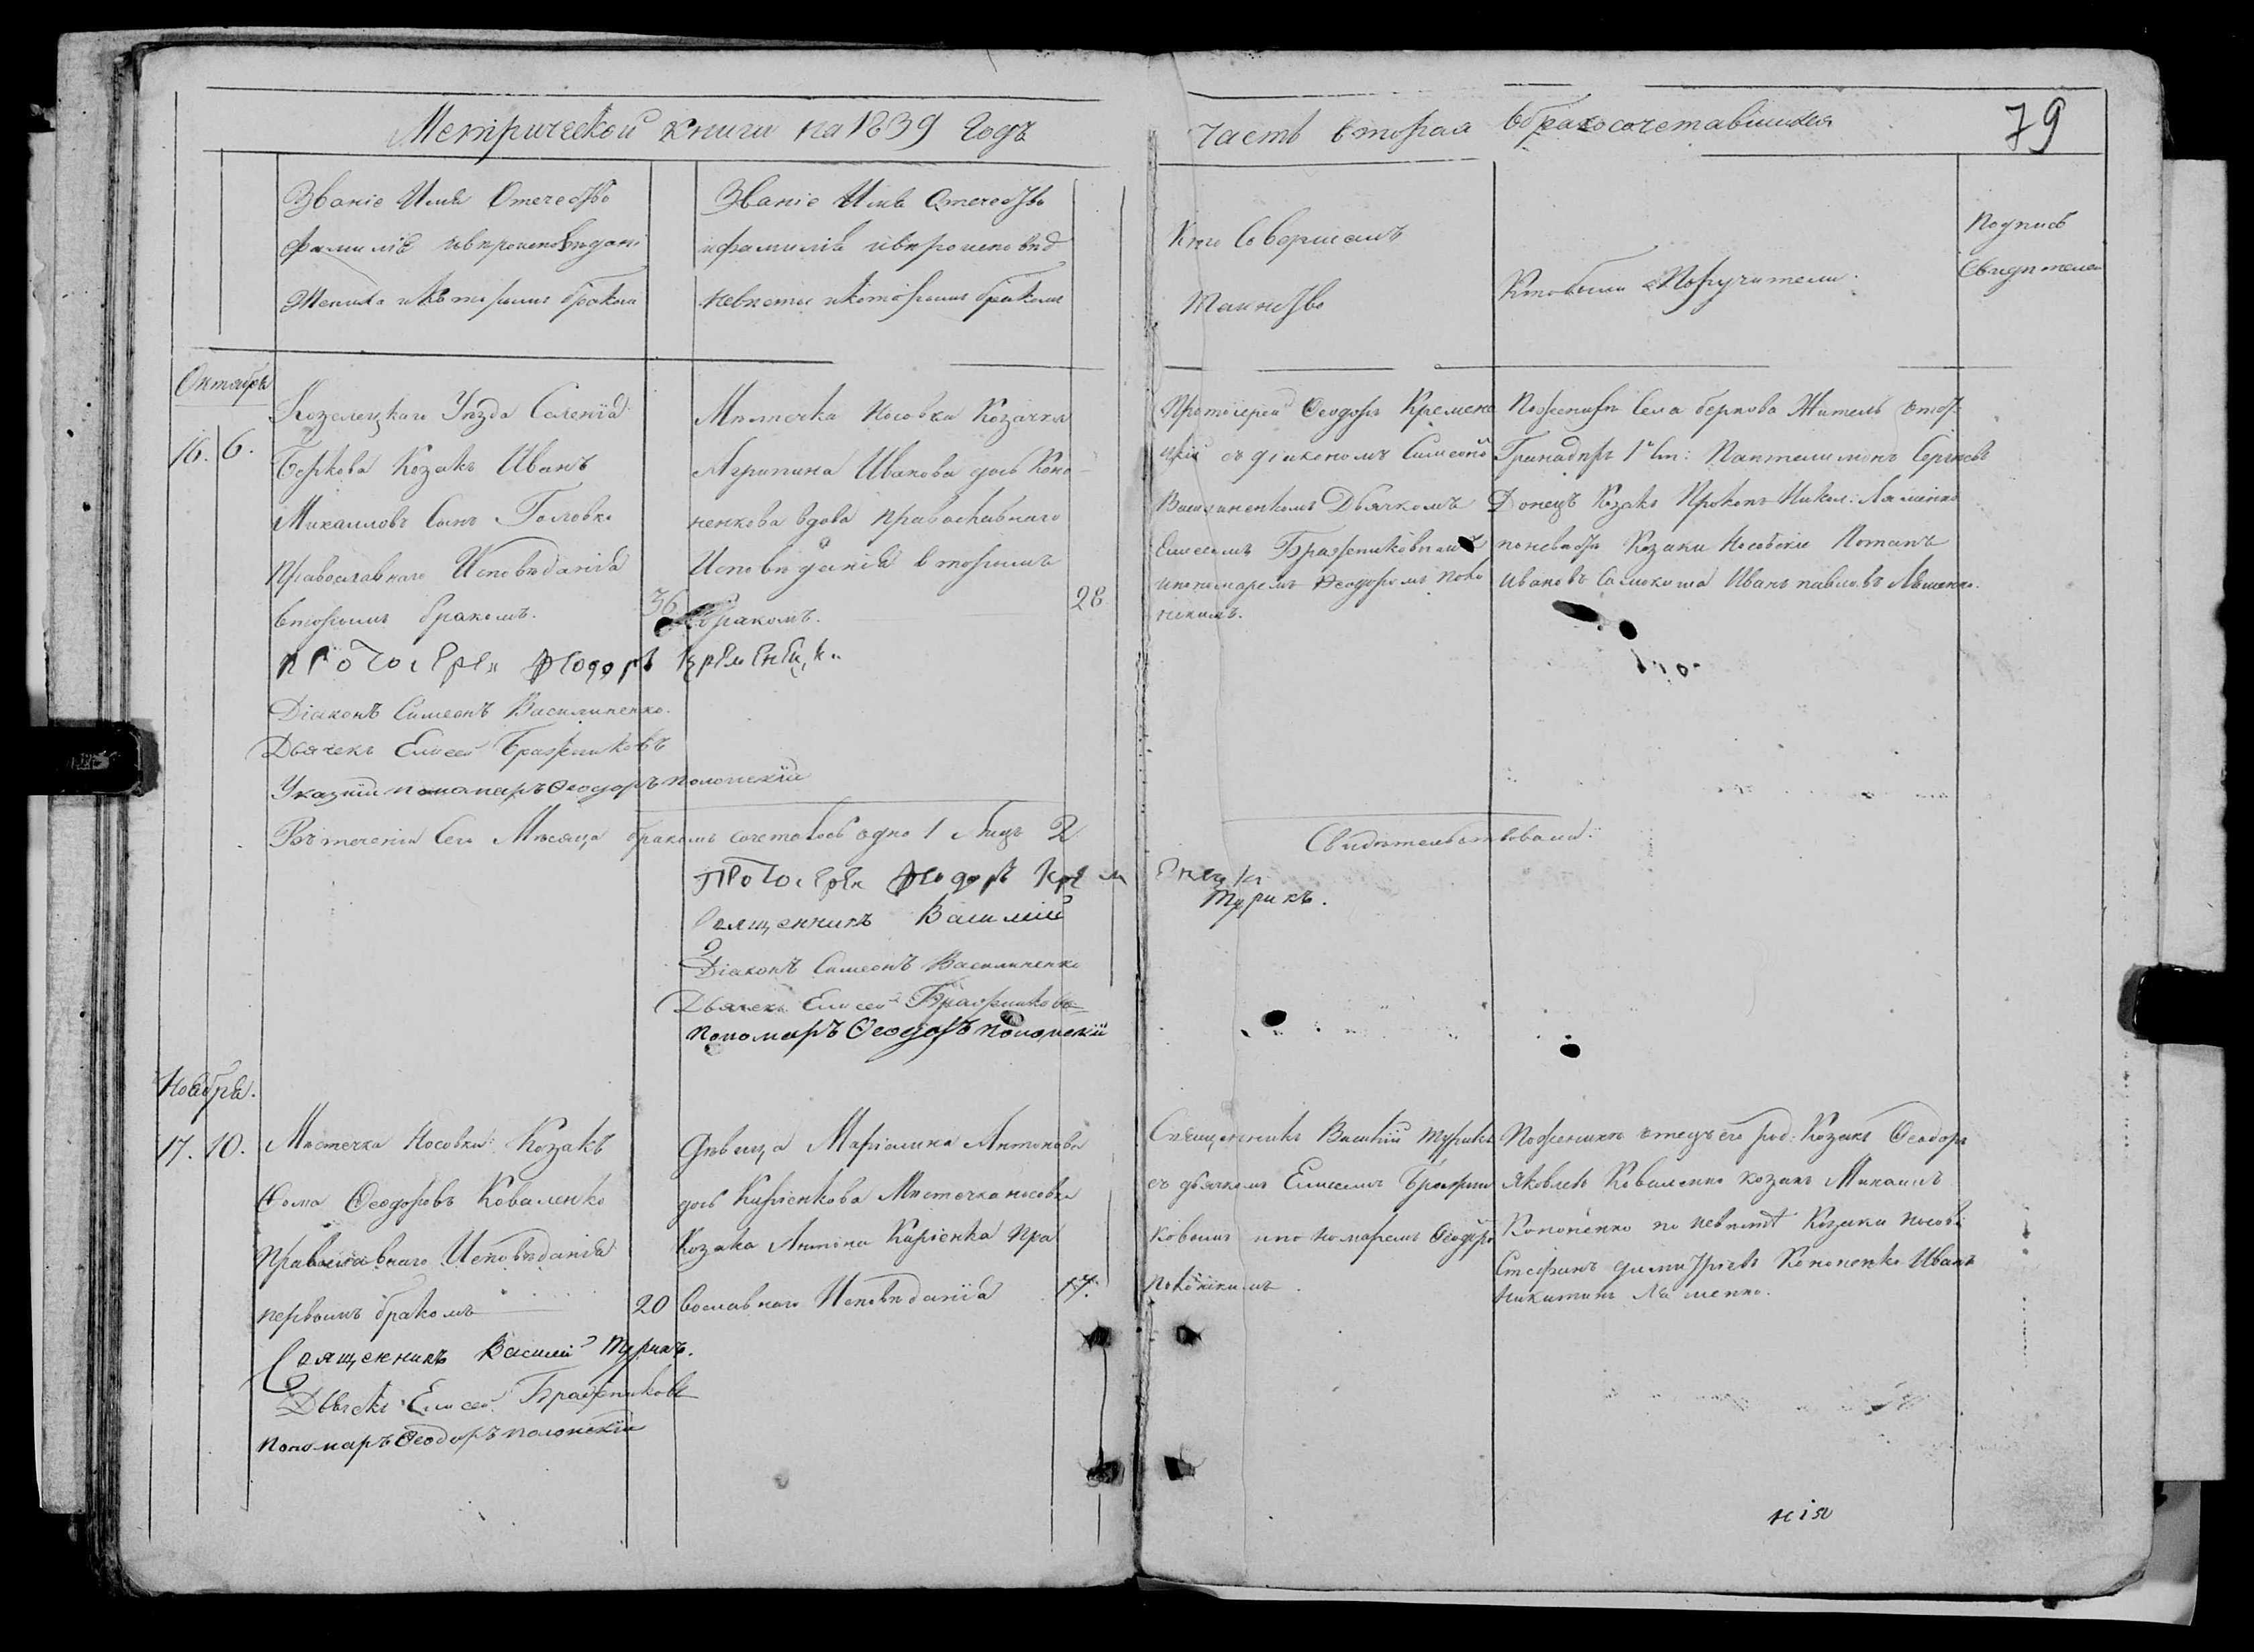 Метрической книги на 1839 годъ
часть вторая о бракосочетавшихся
79
Званіе Имя Отечество
Фамилія и вѣроисповѣдані
Жениха и которымъ бракомъ
Званіе Имя Отечество
и фамилія и вѣроисповѣд
невѣсты и которымъ бракомъ
Кто Совершалъ
Таинство
Кто были Поручители
Подпись
Свидѣтелей
Октябрь
16. 6.
Козелецкаго Уѣзда Селенія
Беркова Козакъ Иванъ
Михаиловъ Сынъ Головко
Православнаго Исповѣданія
вторымъ бракомъ.
36
Мѣстечка Носовки Козачка
Агрипина Иванова дочь Коно
ненкова вдова православнаго
Исповѣданія вторымъ
бракомъ.
28
Протоіерей Ѳеодоръ Кремене
цкій съ діакономъ Симеоно
Василиненкомъ Дьячкомъ
Елисеемъ Бражниковымъ
и пономаремъ Ѳеодоромъ Поло
нскимъ.
По женихѣ Села беркова Жители
Гринадиръ Пантелимонъ Сергѣевъ
Донецъ Козакъ Прокопъ Никол: Ляшенко
по невѣстѣ Козаки Носовскіе Потапъ
Ивановъ Иванъ павловъ Ляшенко.
Протоіерей Ѳеодоръ Кременецки
Діаконъ Симеонъ Василиненко.
Дьячекъ Елисей Бражниковъ
Указній пономаръ Ѳеодоръ полонскій
Въ теченіи Сего Мѣсяца бракомъ сочеталось одно 1 Лицъ 2
Свидѣтельствовали:
Протоіерей Ѳеодоръ Кременецкі
Священникъ Василій Турикъ.
Діаконъ Симеонъ Василиненко
Дьячекъ Елисей Бражниковъ
пономаръ Ѳеодоръ полонскій
Ноября.
17. 10.
Мѣстечка Носовки Козакъ
Ѳома Ѳеодоровъ Коваленко
Православнаго Исповѣданія
первымъ бракомъ
20
Дѣвица Маріамна Антонова
дочь Киріенкова Мѣстечка носовки
Козака Антона Киріенка Пра
вославнаго Исповѣданія
17.
Священникъ Василій Турикъ
съ дьячкомъ Елисеемъ Бражни
ковымъ и пономаремъ Ѳеодоро
По женихѣ отецъ его род: Козакъ Ѳеодоръ
Яковлевъ Коваленко козакъ Михаилъ
Кононенко по невѣстѣ Козаки носов:
Стефанъ димитріевъ Кононенко Иванъ
Никитинъ Ляшенко.
Священникъ Василій Турикъ.
Дьячекъ Елисей Бражниковъ
пономаръ Ѳеодоръ полонскій
нія